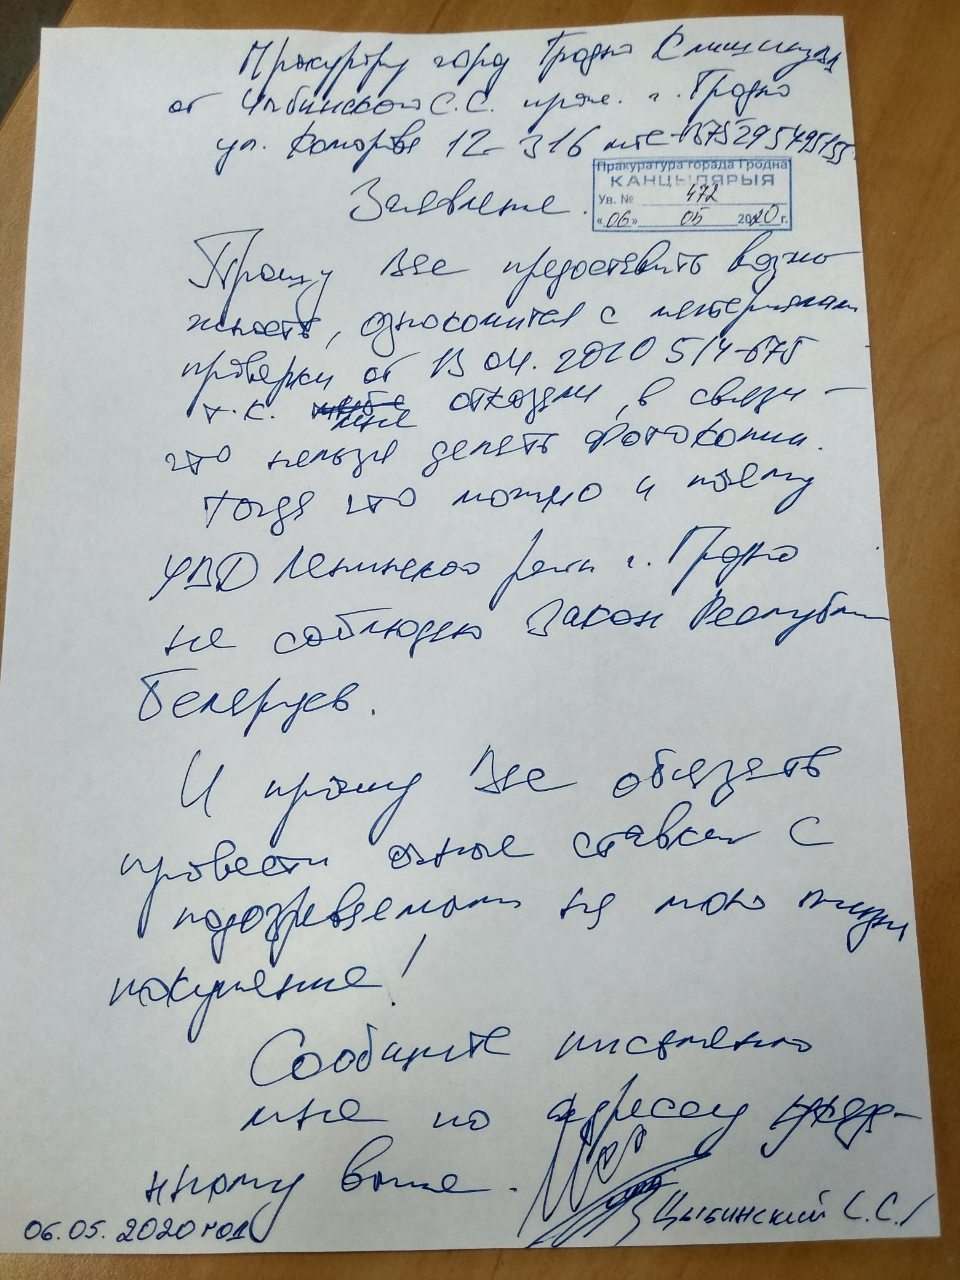 Прокурору город Гродно
от Цыбинского С.С. прож. г. Гродно
ул. 12-316 +375295495155
Пракуратура горада Гродна
КАНЦЫЛЯРЫЯ
Ув. № 472
«06» 05 2020 г.
Заявление.
Прошу Вас предоставить возмо
жность, ознокомится с материялами
проверки от 13 04. 2020 514-675
т.к. мне отказали, в связи
что нельзя делать фотокопии.
Тогда что можно и почему
УВД Ленинского г. Гродно
не соблюдаю Закон Республики
Беларусев.
И прошу Вас обязать
провести очные ставки с
подозреваемыми на мою жизнь
покушение!
Сообщите письменно
мне по адресу указа-
нному выше.
06.05.2020 год Цыбинский С.С./